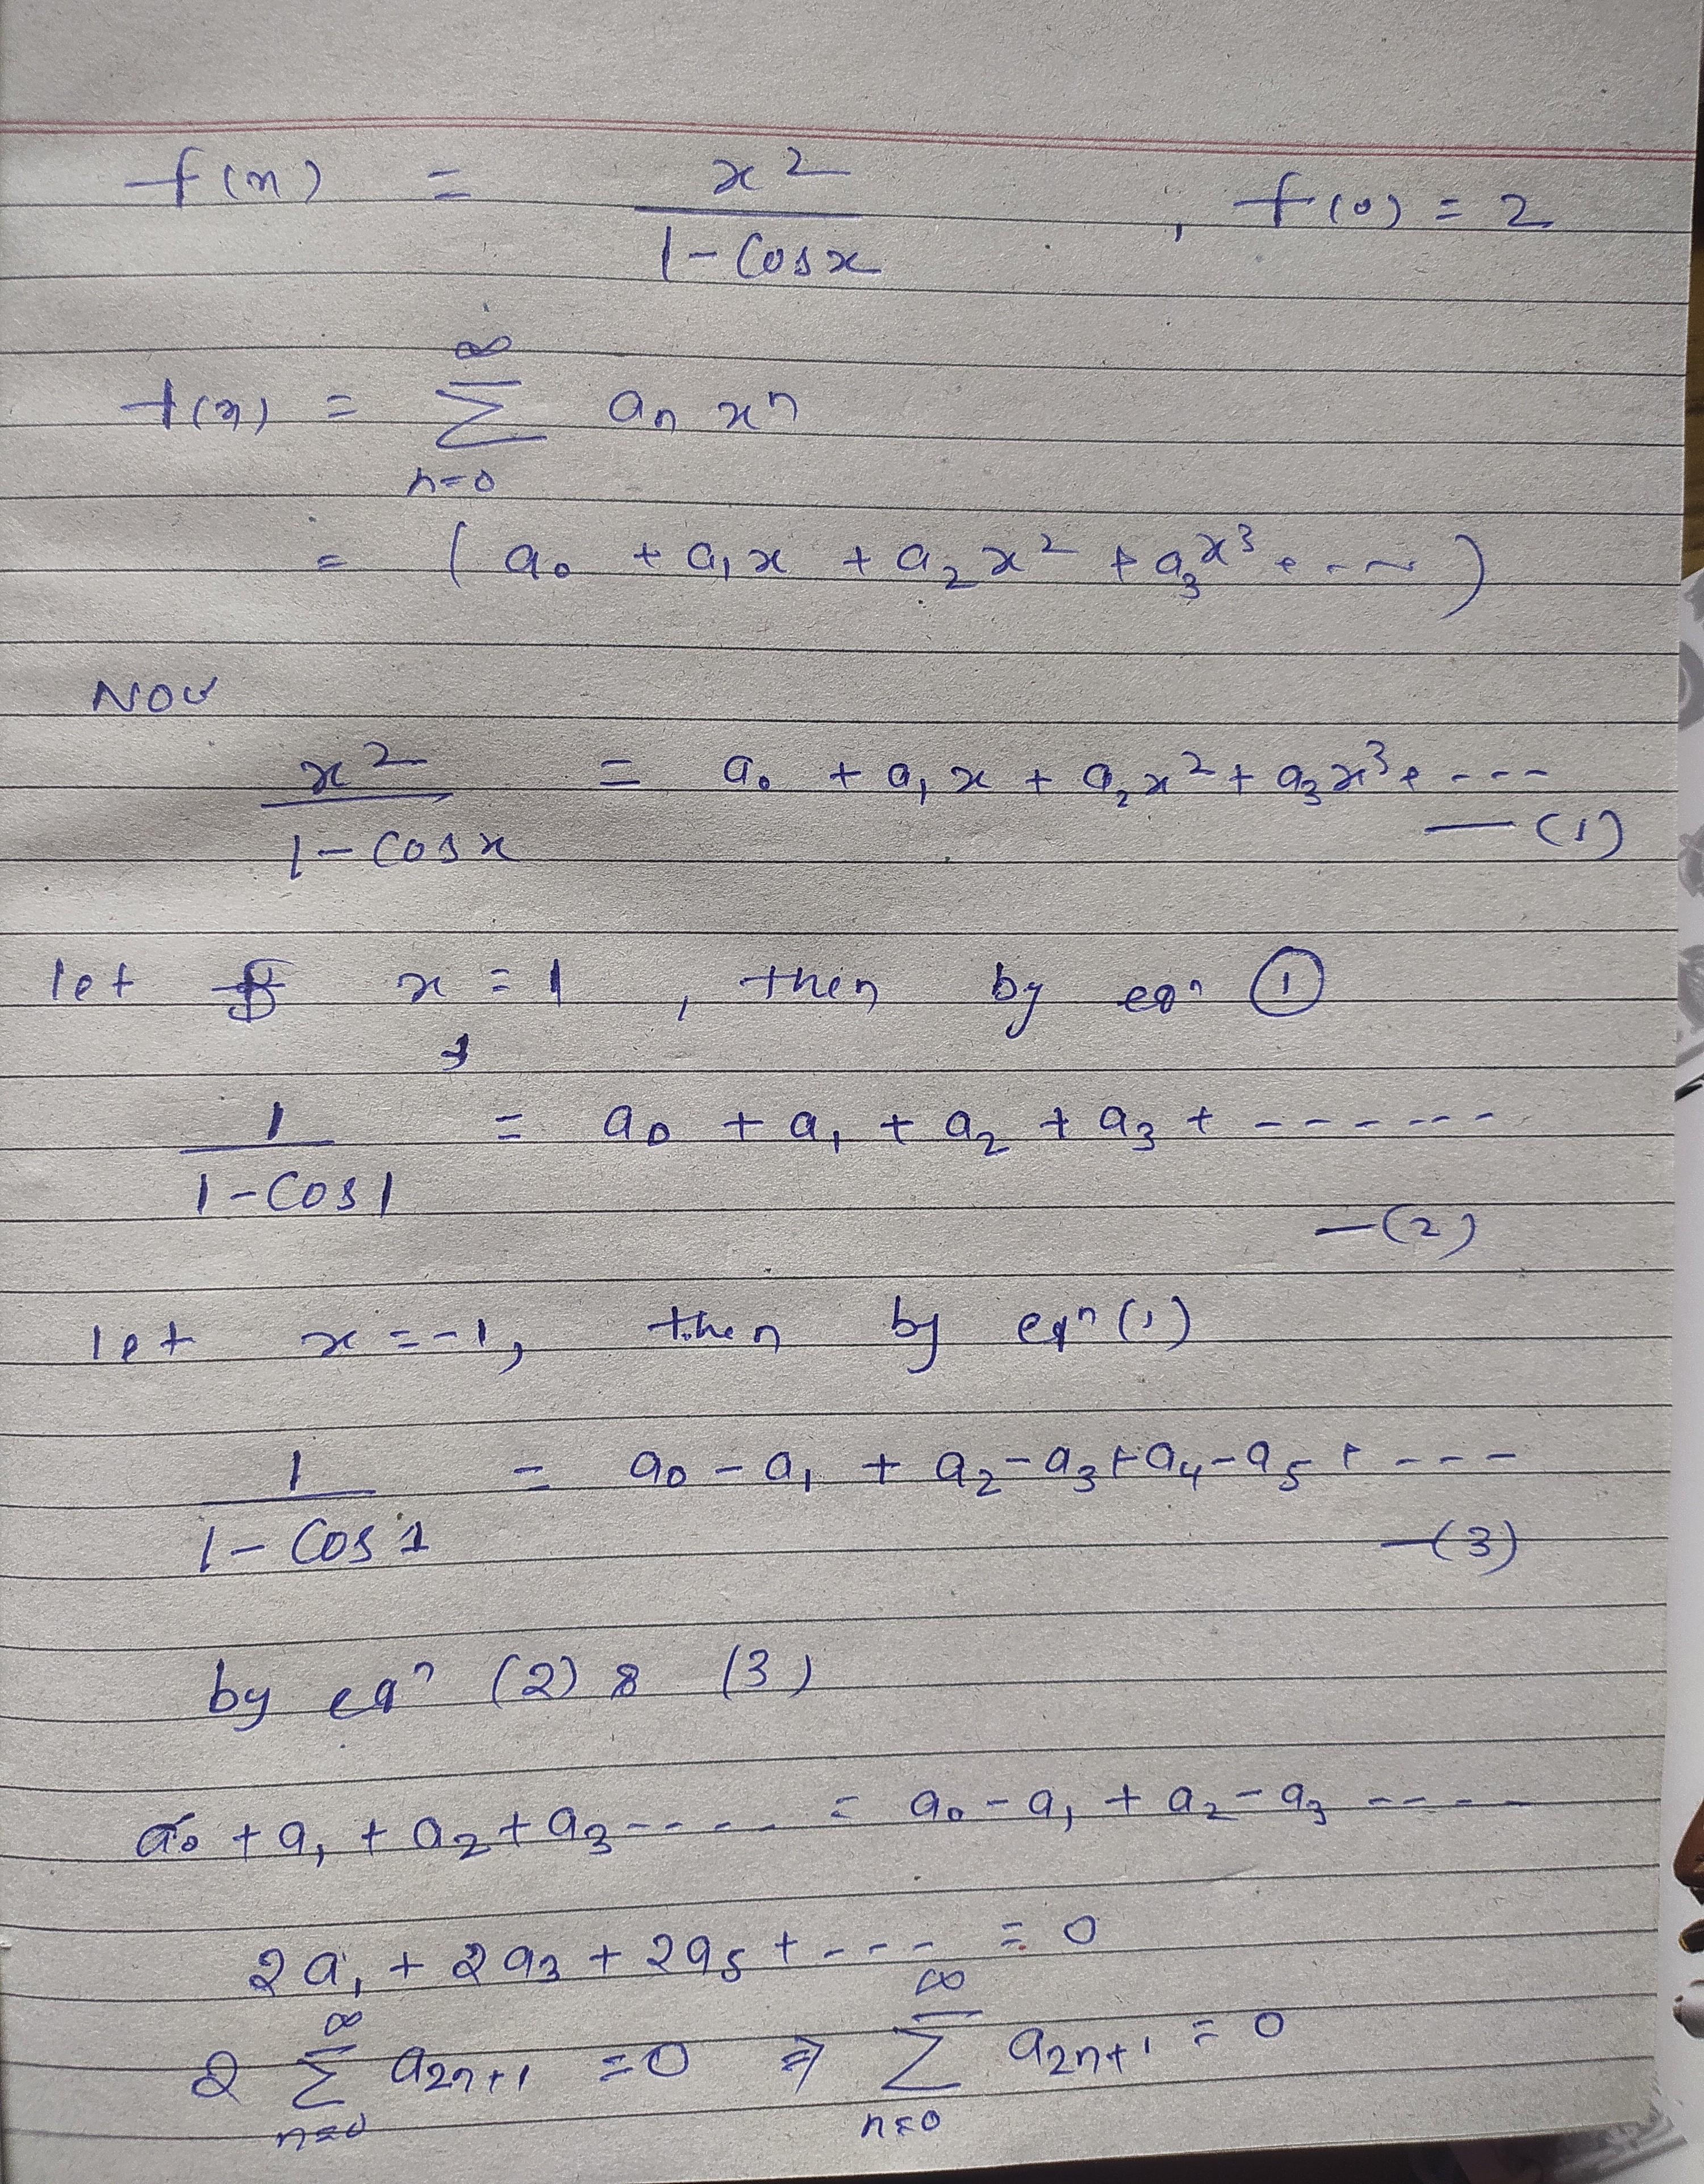 f(x) = x² / (1 - Cosx) , f(0) = 2
f(x) = ∑_{n=0}^{∞} aₙ xⁿ
= ( a₀ + a₁x + a₂x² + a₃x³ + ---- )
NOW
x² / (1 - Cosx) = a₀ + a₁x + a₂x² + a₃x³ + --- —(1)
let x = 1 , then by eqⁿ ①
1 / (1 - Cos1) = a₀ + a₁ + a₂ + a₃ + ------ —(2)
let x = -1, then by eqⁿ (1)
1 / (1 - Cos1) = a₀ - a₁ + a₂ - a₃ + a₄ - a₅ + --- —(3)
by eqⁿ (2) & (3)
a₀ + a₁ + a₂ + a₃ ---- = a₀ - a₁ + a₂ - a₃ ----
2a₁ + 2a₃ + 2a₅ + --- = 0
2 ∑_{n=0}^{∞} a₂ₙ₊₁ = 0 ⇒ ∑_{n=0}^{∞} a₂ₙ₊₁ = 0